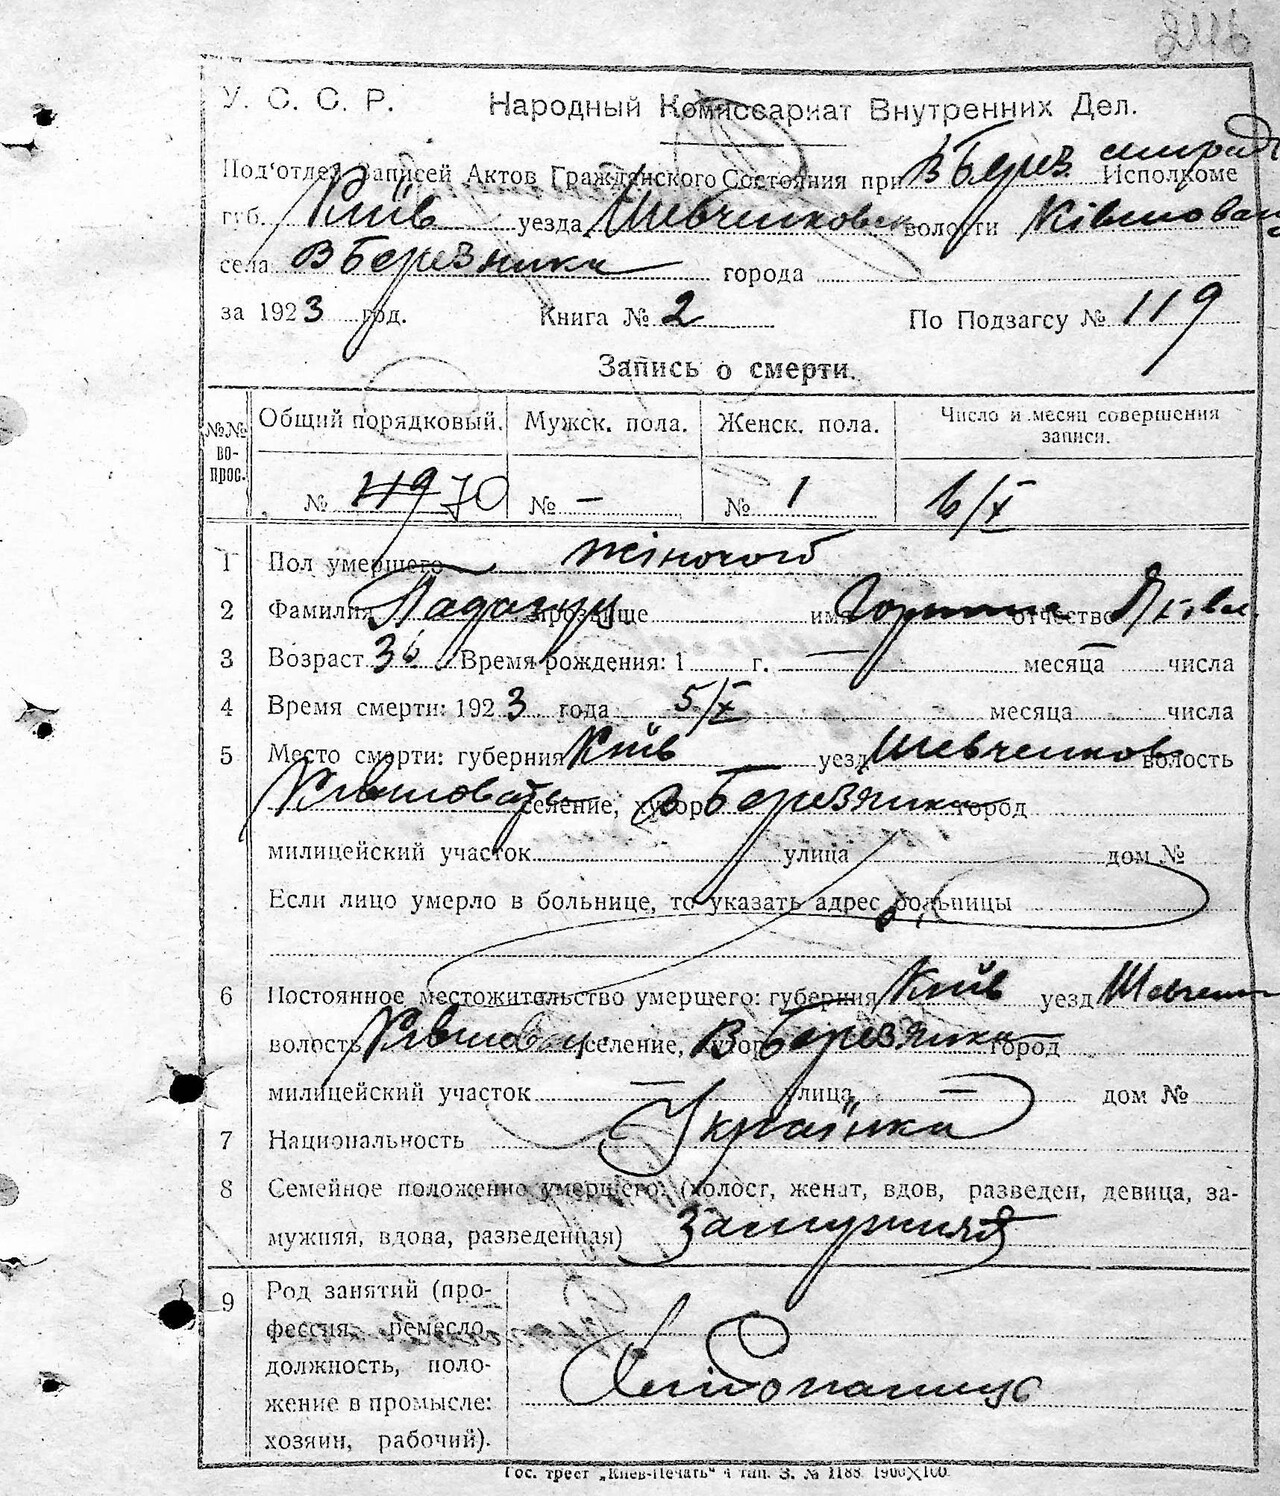 2116
У. С. С. Р. Народный Комиссариат Внутренних Дел.
Под'отдел Записей Актов Гражданского Состояния при В Берез. сільраді Исполкоме
губ. Київ уезда Шевченковск волости Ківшоват
села В Березянка города
за 1923 год. Книга № 2 По Подзагсу № 119
Запись о смерти.
№№ во-прос. Общий порядковый. Мужск. пола. Женск. пола. Число и месяц совершения записи.
№ 119 70 № — № 1 6/X
1 Пол умершего жіночого
2 Фамилия прозвище имя отчество Яковл.
3 Возраст 36 Время рождения: 1 г. — месяца — числа
4 Время смерти: 1923 года 5/X месяца числа
5 Место смерти: губерния Київ уезд Шевченков волость
Ківшовата селение, хутор В Березянка город
милицейский участок улица дом №
Если лицо умерло в больнице, то указать адрес больницы
6 Постоянное местожительство умершего: губерния Київ уезд Шевченк
волость Ківшоват. селение, хутор В Березянка город
милицейский участок — улица — дом №
7 Национальность Українка
8 Семейное положение умершего: (холост, женат, вдов, разведен, девица, за-
мужняя, вдова, разведенная) замужняя
9 Род занятий (про-
фессия, ремесло,
должность, поло-
жение в промысле:
хозяин, рабочий).
Хлібопашец
Гос. трест „Киев-Печать" 4 тип. З. № 1188. 1900×100.